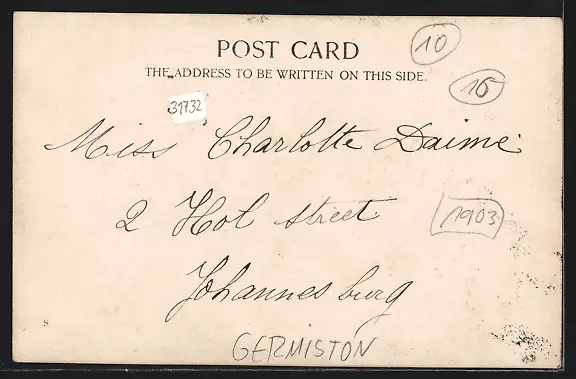 POST CARD
10
THE ADDRESS TO BE WRITTEN ON THIS SIDE.
16
31732
Miss Charlotte Daime
2 Hol street
1903
Johannesburg
S
GERMISTON